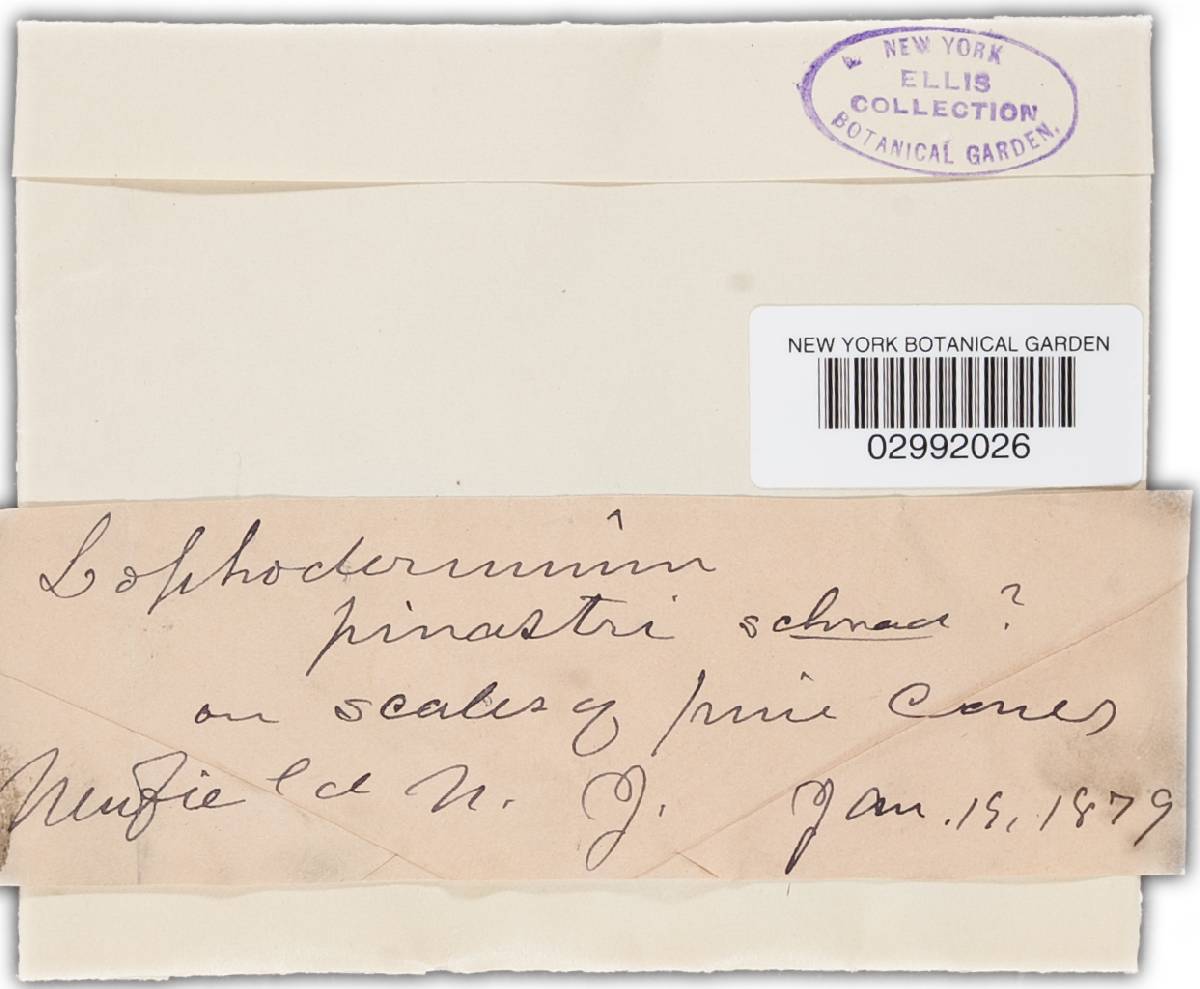 NEW YORK
ELLIS
COLLECTION
BOTANICAL GARDEN.
NEW YORK BOTANICAL GARDEN
02992026
Lophodermium
pinastri schrad ?
on scales of pine Cones
Newfield N. J. Jan. 1879